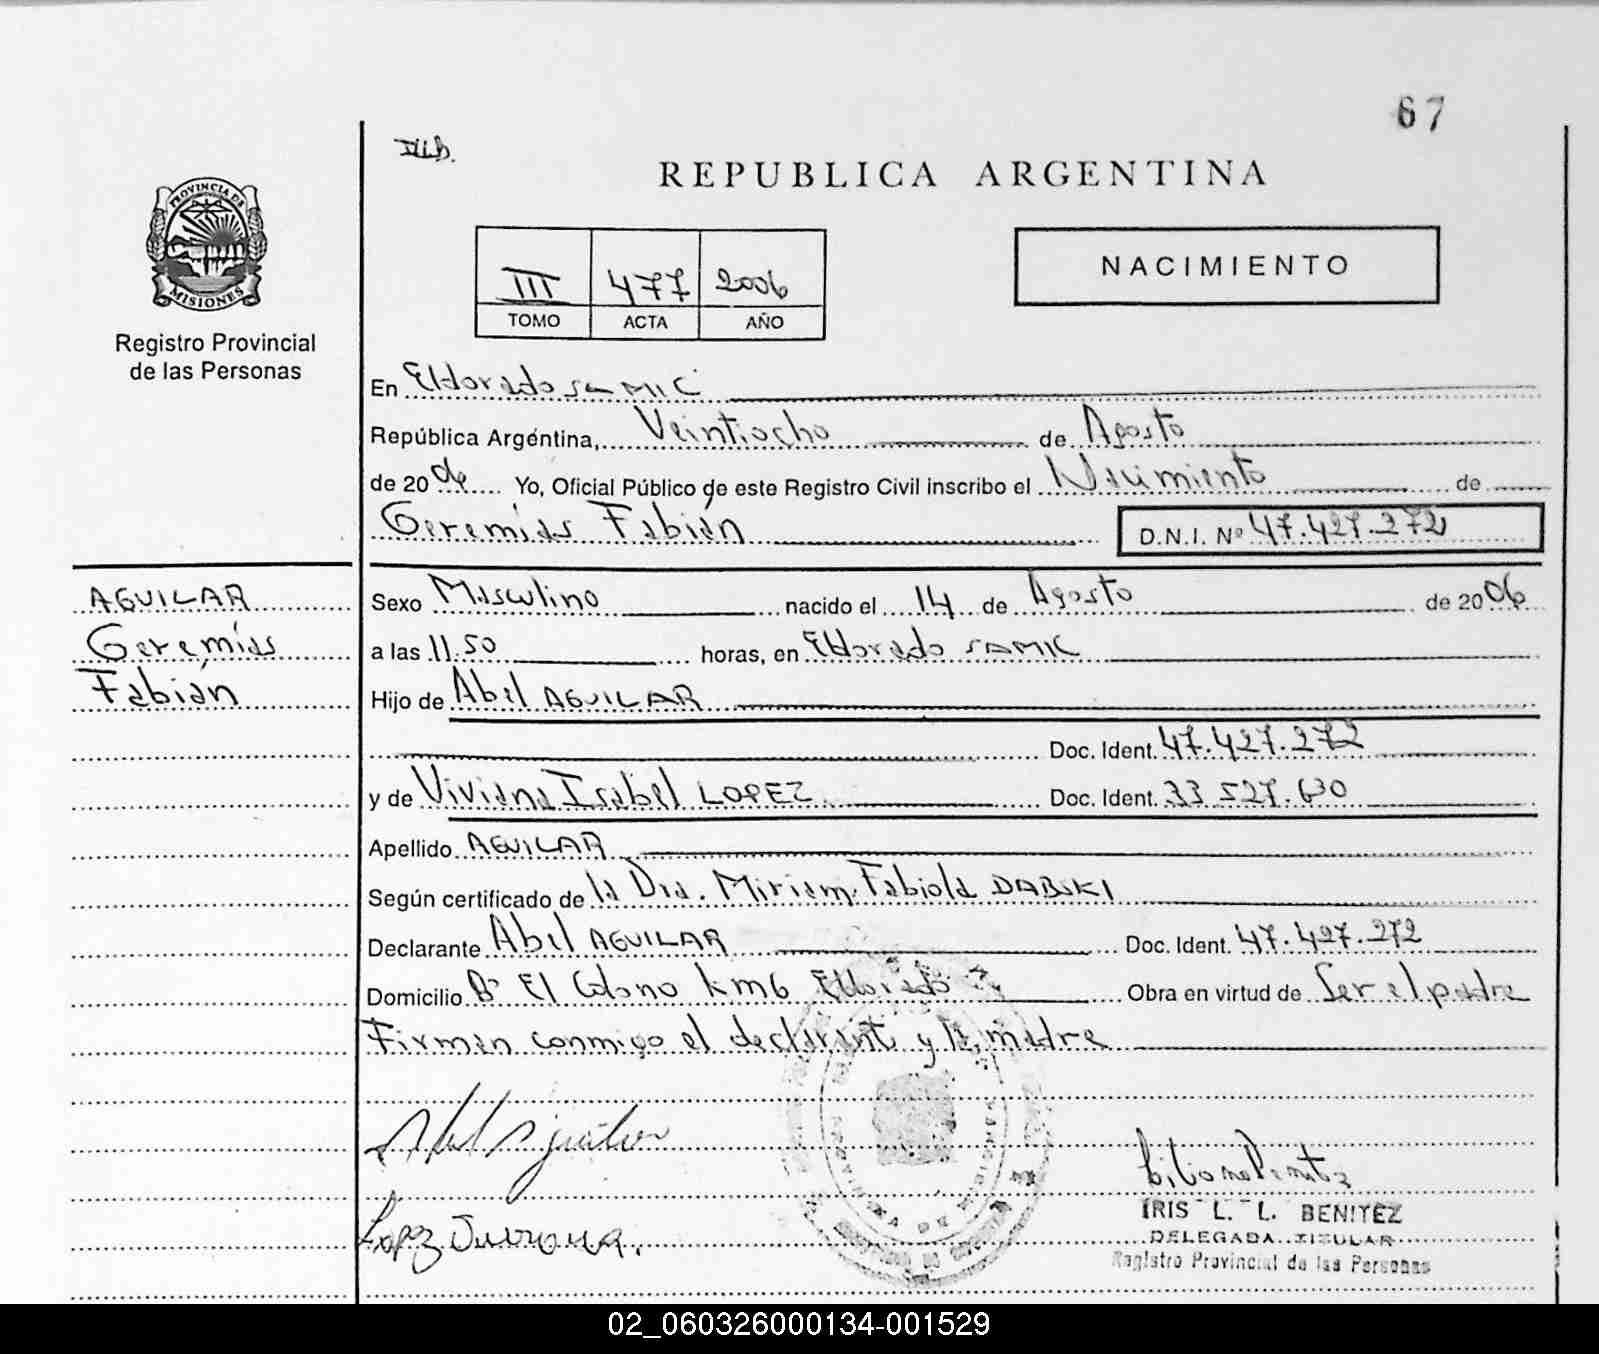 67
REPUBLICA ARGENTINA
PROVINCIA DE
MISIONES
Registro Provincial
de las Personas
III 477 2006
TOMO ACTA AÑO
NACIMIENTO
En Eldorado SAMIC
República Argentina, Veintiocho de Agosto
de 20 06 Yo, Oficial Público de este Registro Civil inscribo el Nacimiento de
Geremías Fabián D.N.I. Nº 47.427.272
AGUILAR
Geremías
Fabián
Sexo Masculino nacido el 14 de Agosto de 2006
a las 11.50 horas, en Eldorado SAMIC
Hijo de Abel AGUILAR
Doc. Ident. 47.427.272
y de Viviana Isabel LOPEZ Doc. Ident. 33 527.630
Apellido AGUILAR
Según certificado de la Dra. Miriam Fabiola DABSKI
Declarante Abel AGUILAR Doc. Ident. 47.427.272
Domicilio Bº El Colono km6 Eldorado Obra en virtud de Ser el padre
Firman conmigo el declarante y la madre
Abel Aguilar
Lopez
IRIS L. L. BENITEZ
DELEGADA TITULAR
Registro Provincial de las Personas
02_060326000134-001529